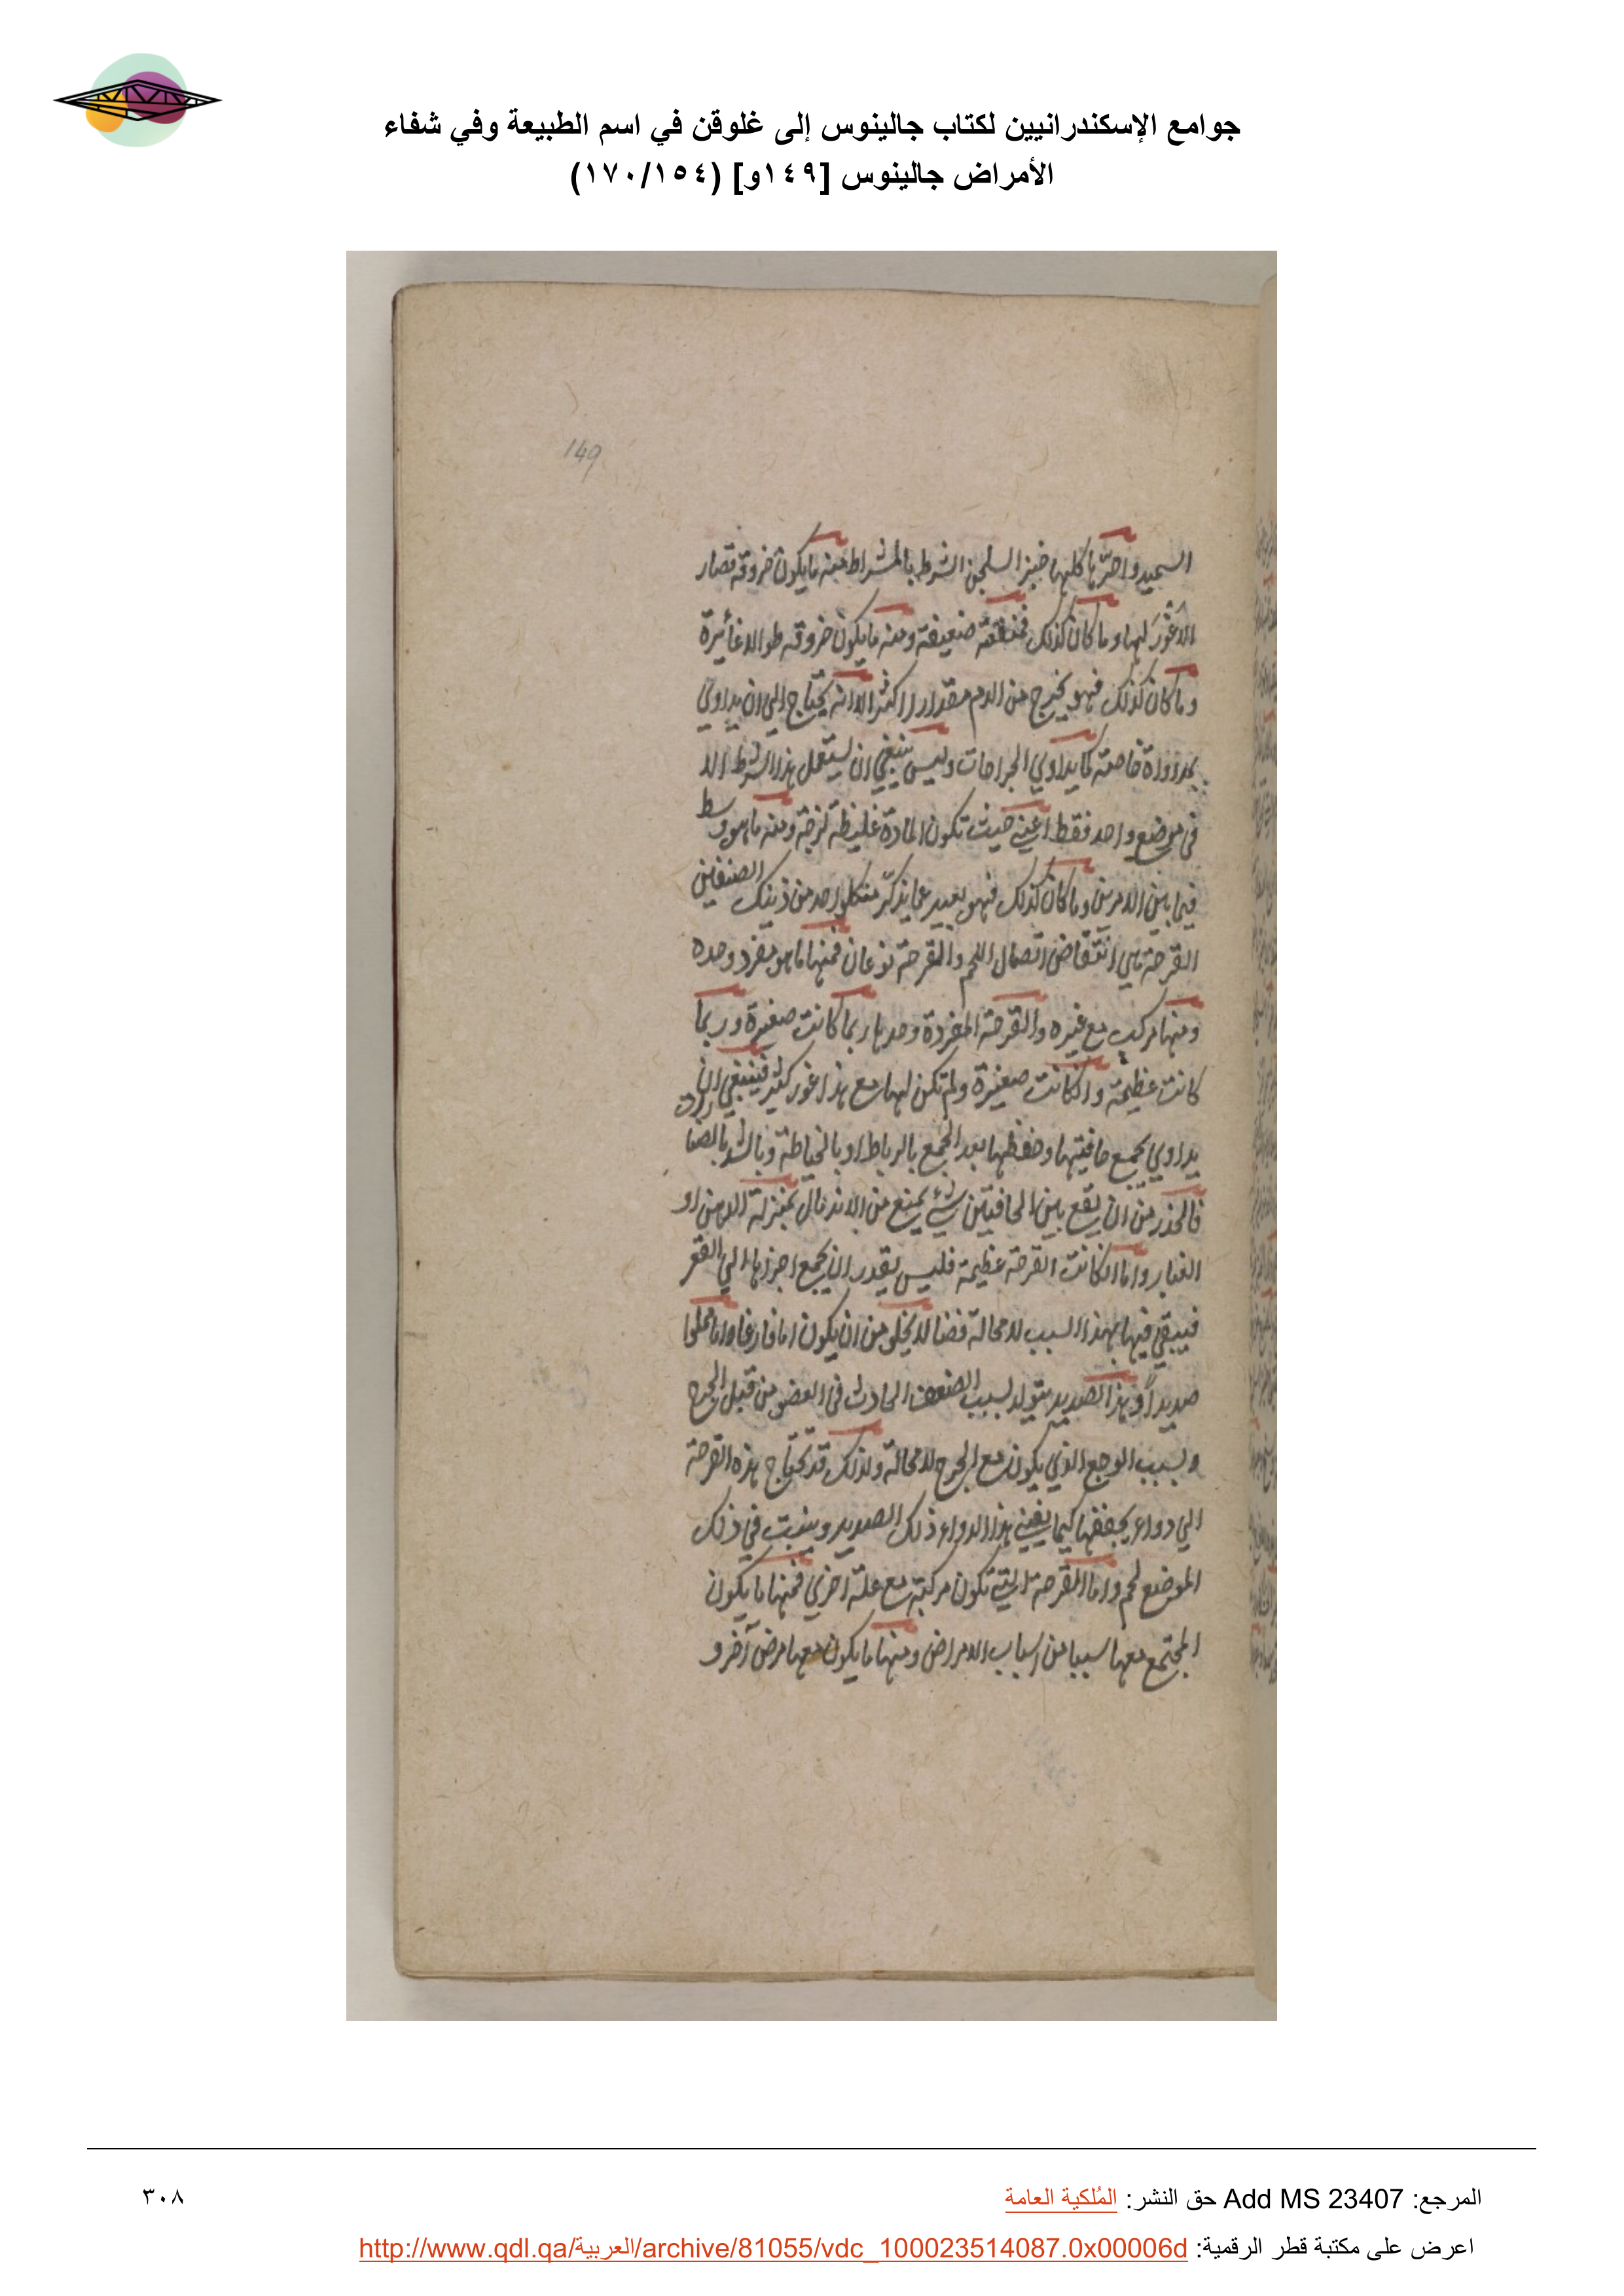 جوامع الإسكندرانيين لكتاب جالينوس إلى غلوقن في اسم الطبيعة وفي شفاء
الأمراض جالينوس [١٤٩و] (١٧٠/١٥٤)
149
السميد واضرها كلها خبز السلجن الشرط بالمشراط منه ما يكون خروقه قصار
لا غور لها وما كان كذلك فمنفعته ضعيفة ومنه ما يكون خروقه طوالا غائرة
وما كان كذلك فهو يخرج من الدم مقدارا اكثر الا انه يحتاج الي ان يداوي
بمداواة خاصته كما يداوي الجراحات وليس ينبغي ان يستعمل هذا الشرط الا
في موضع واحد فقط اعني حيث تكون المادة غليظة لزجة ومنه ما هو وسط
فيما بين الامرين وما كان كذلك فهو بعيد عما يذكر من كل واحد من ذينك الصنفين
القرحة هي انتقاض اتصال اللحم والقرحة نوعان فمنها ما هو مفرد وحده
ومنها مركب مع غيره والقرحة المفردة وحدها ربما كانت صغيرة وربما
كانت عظيمة وان كانت صغيرة ولم تكن لها مع هذا غور كثير فينبغي ان
يداوي بجمع حافيتها وحفظها بعد الجمع بالرباط او بالخياطة وبالشد بالصنارات
فالحذر من ان يقع بين الحافتين شئ يمنع من الاندمال بمنزلة الدهن او
الغبار واما ان كانت القرحة عظيمة فليس يقدر ان يجمع اجزاها الي القعر
فيبقي فيها بهذا السبب لا محالة فضا لا يخلو من ان يكون اما فارغا واما مملوا
صديدا وهذا الصديد يتولد بسبب الضعف الحادث في العضو من قبل الجرح
وبسبب الوجع الذي يكون مع الجرح لا محالة ولذلك قد تحتاج هذه القرحة
الي دواء يجففها كيما يفني هذا الدواء ذلك الصديد وينبت في ذلك
الموضع لحم واما القرحة التي تكون مركبة مع علة اخري فمنها ما يكون
المجتمع معها سببا من اسباب الامراض ومنها ما يكون معها مرض آخر و
المرجع: Add MS 23407 حق النشر: المُلكية العامة
٣٠٨
اعرض على مكتبة قطر الرقمية: http://www.qdl.qa/العربية/archive/81055/vdc_100023514087.0x00006d